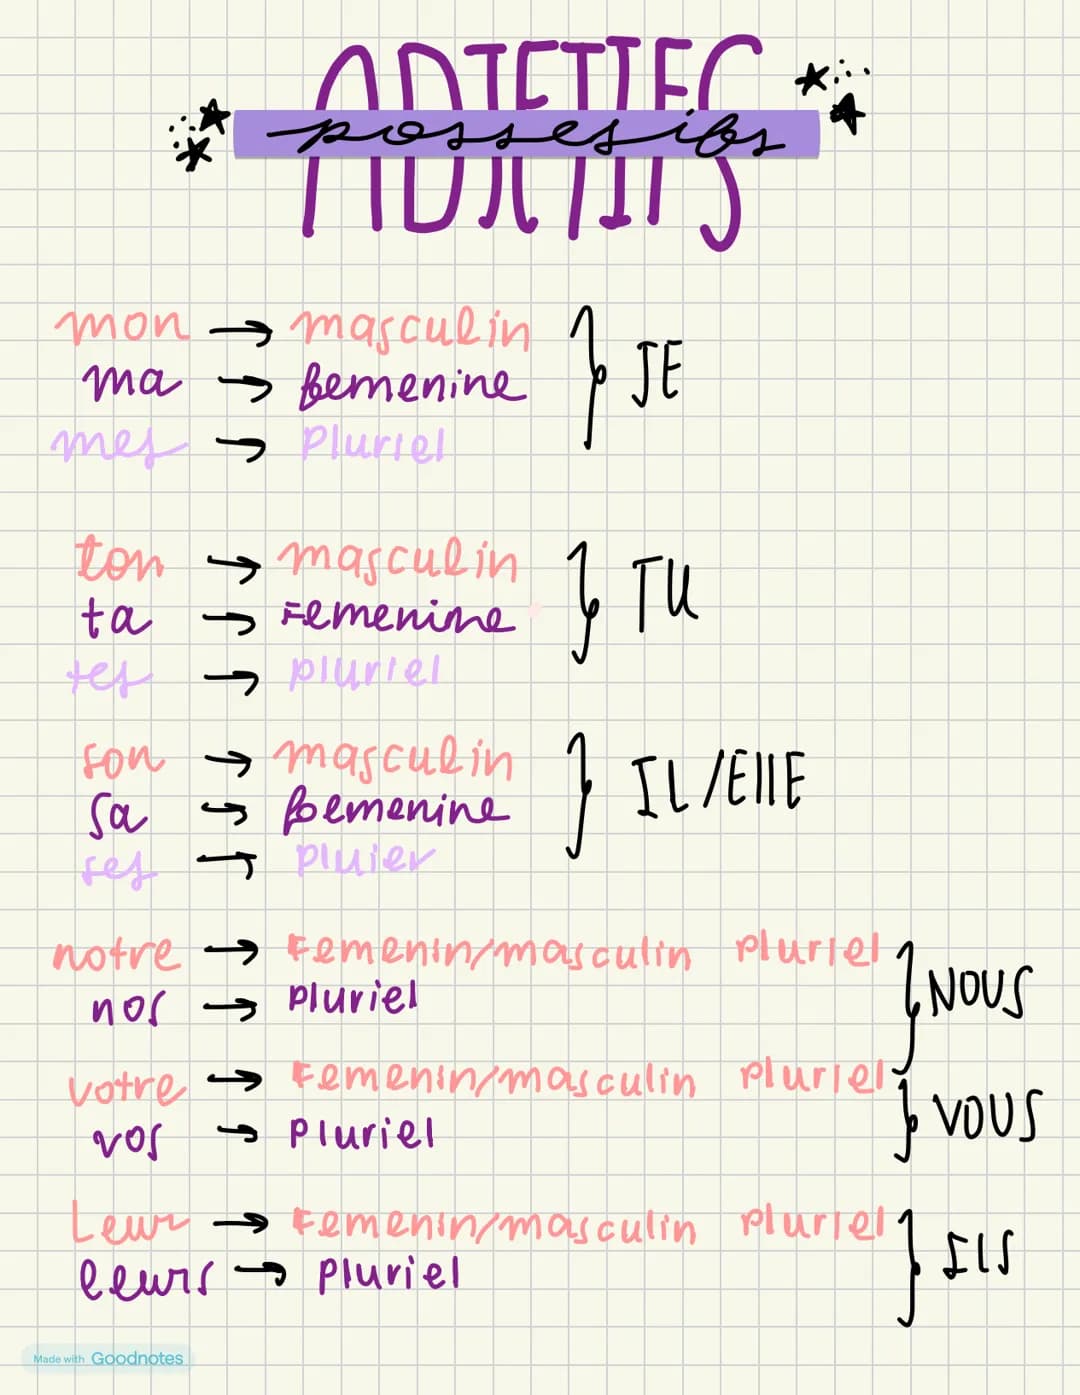 ADJETIFS
possesifs
mon → masculin
ma → femenine
mes → Pluriel
JE
ton → masculin
ta → Femenine
tes → pluriel
TU
son → masculin
sa → femenine
ses → pluier
IL/EllE
notre → Femenin/masculin pluriel
nos → pluriel
NOUS
votre → Femenin/masculin pluriel
vos → pluriel
VOUS
Leur → Femenin/masculin pluriel
leurs → pluriel
IlS
Made with Goodnotes